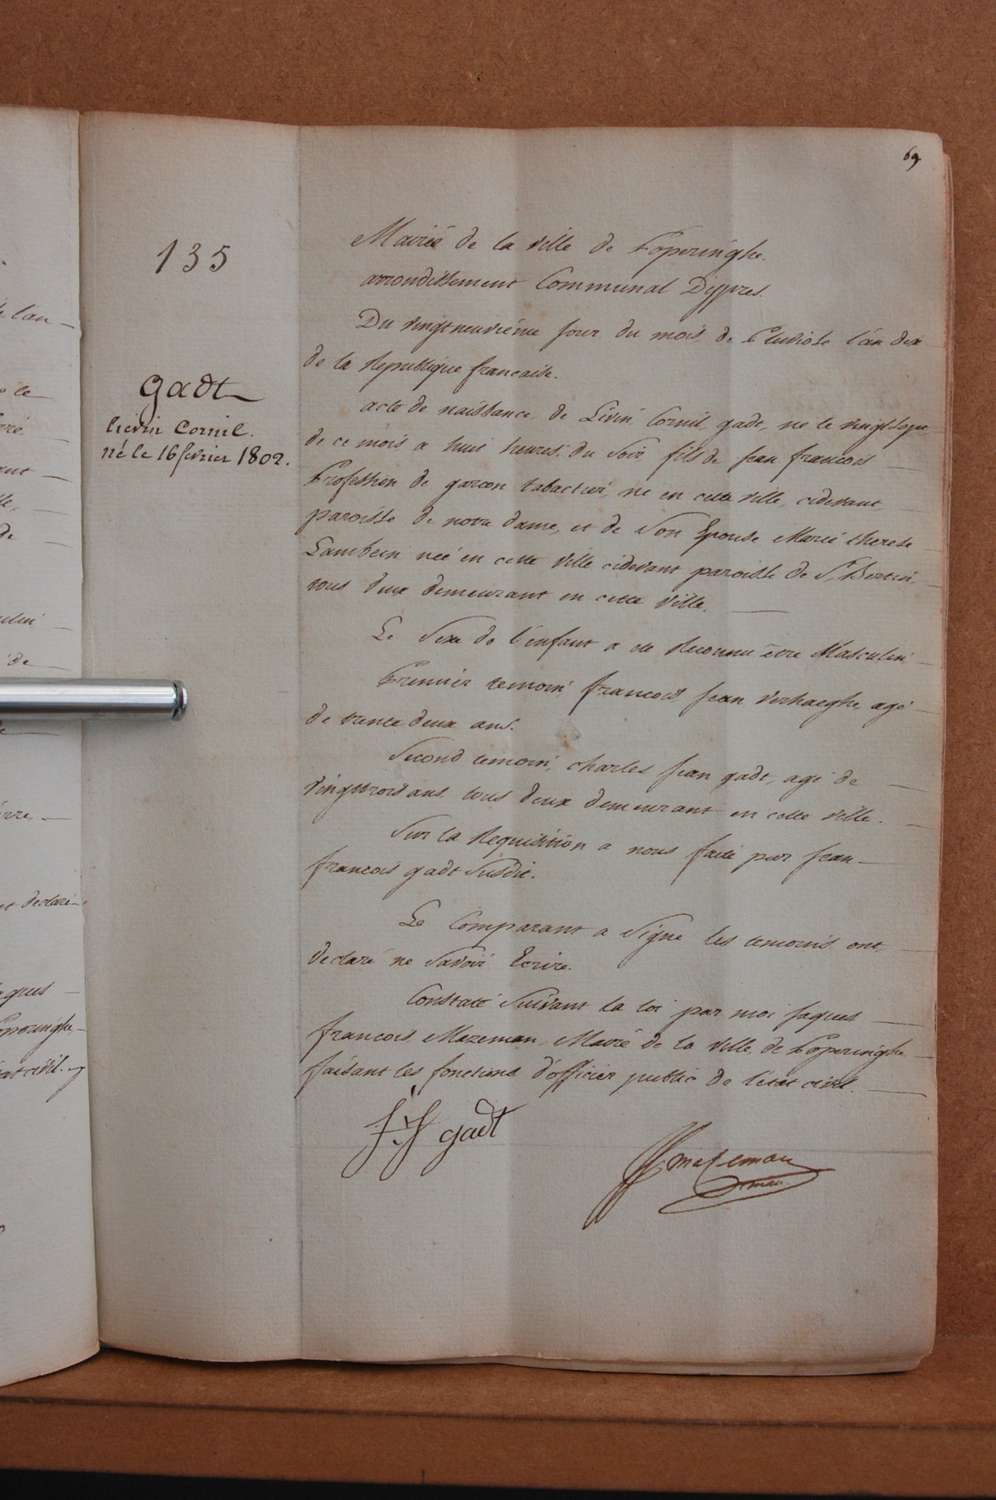 69
135
Mairie de la ville de Poperinghe.
arrondissement Communal Dypres.
Du vingt neuvième jour du mois de Pluviose l'an dix
de la Republique francaise.
gadt
lievin Cornil.
né le 16 février 1802.
acte de naissance de Livin Cornil gadt, né le vingt sept
de ce mois a huit heures du Soir fils de jean francois
Profession de garcon tabactier, né en cette ville, cidevant
paroisse de notre dame, et de Son Epouse Marie therese
Lambein née en cette ville cidevant paroisse de St Bertin
tous deux demeurant en cette ville.
Le Sexe de l'enfant a été Reconnu être Masculin
Premier temoin francois jean verhaeghe agé
de trente deux ans.
Second temoin, charles jean gadt, agé de
vingt trois ans, tous deux demeurant en cette ville.
Sur la Requisition a nous faite par jean
francois gadt Susdit.
Le Comparant a Signé les temoins ont
declaré ne Savoir Ecrire.
Constaté Suivant la loi par moi jaques
francois Mazeman Maire de la ville de Poperinghe
faisant les fonctions d'officier public de l'etat civil.
J F gadt
Mazeman